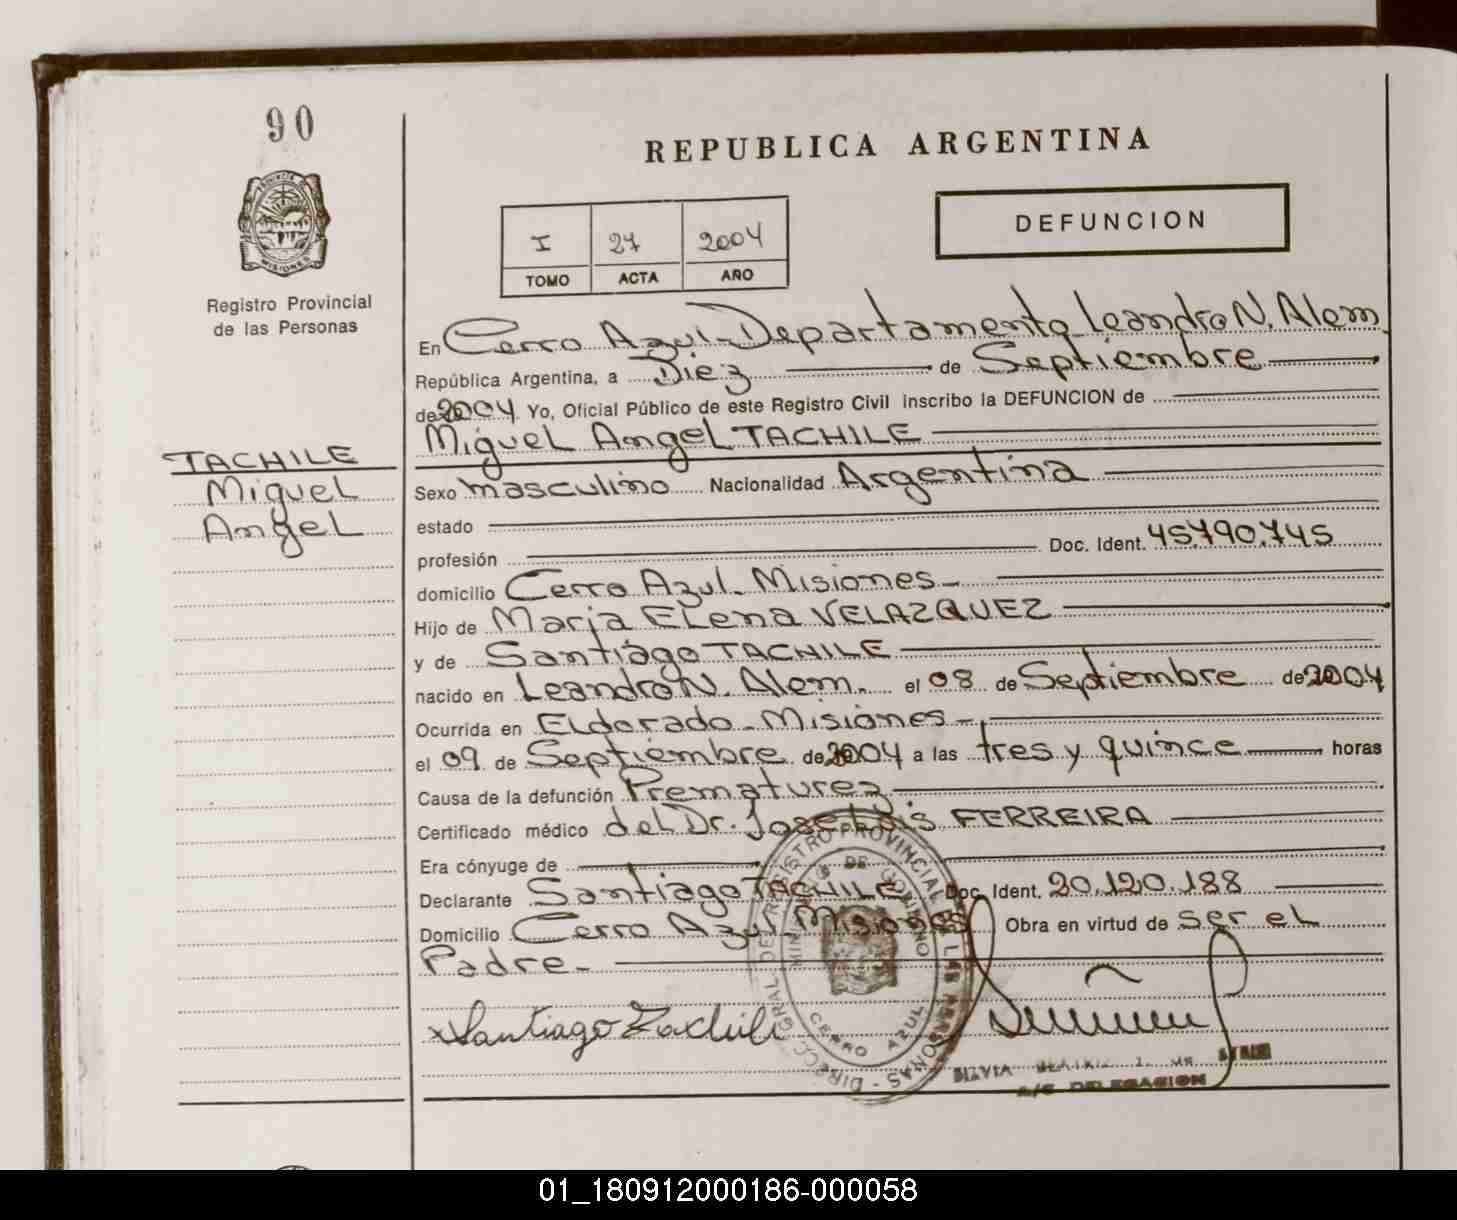 90
PROVINCIA DE
MISIONES
Registro Provincial
de las Personas
TACHILE
Miguel
Angel
REPUBLICA ARGENTINA
I 27 2004
TOMO ACTA AÑO
DEFUNCION
En Cerro Azul - Departamento Leandro N. Alem
República Argentina, a Diez de Septiembre
de 2004 Yo, Oficial Público de este Registro Civil inscribo la DEFUNCION de
Miguel Angel TACHILE
Sexo masculino Nacionalidad Argentina
estado
profesión Doc. Ident. 45.790.745
domicilio Cerro Azul - Misiones -
Hijo de Maria Elena VELAZQUEZ
y de Santiago TACHILE
nacido en Leandro N. Alem. el 08 de Septiembre de 2004
Ocurrida en Eldorado - Misiones -
el 09 de Septiembre de 2004 a las tres y quince horas
Causa de la defunción Prematurez
Certificado médico del Dr. Jose Luis FERREIRA
Era cónyuge de
Declarante Santiago TACHILE Doc. Ident. 20.120.188
Domicilio Cerro Azul - Misiones Obra en virtud de ser el
Padre -
x Santiago Tachile
DIRECC. GRAL. DE REGISTRO PROVINCIAL DE LAS PERSONAS
MINISTERIO DE GOBIERNO
CERRO AZUL
SILVIA BEATRIZ
A/C DELEGACION
01_180912000186-000058